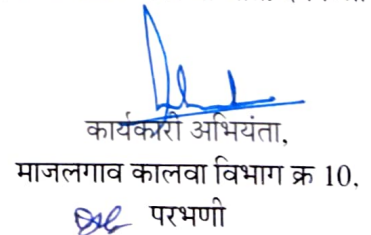 कार्यकारी अभियंता,
माजलगाव कालवा विभाग क्र 10,
परभणी